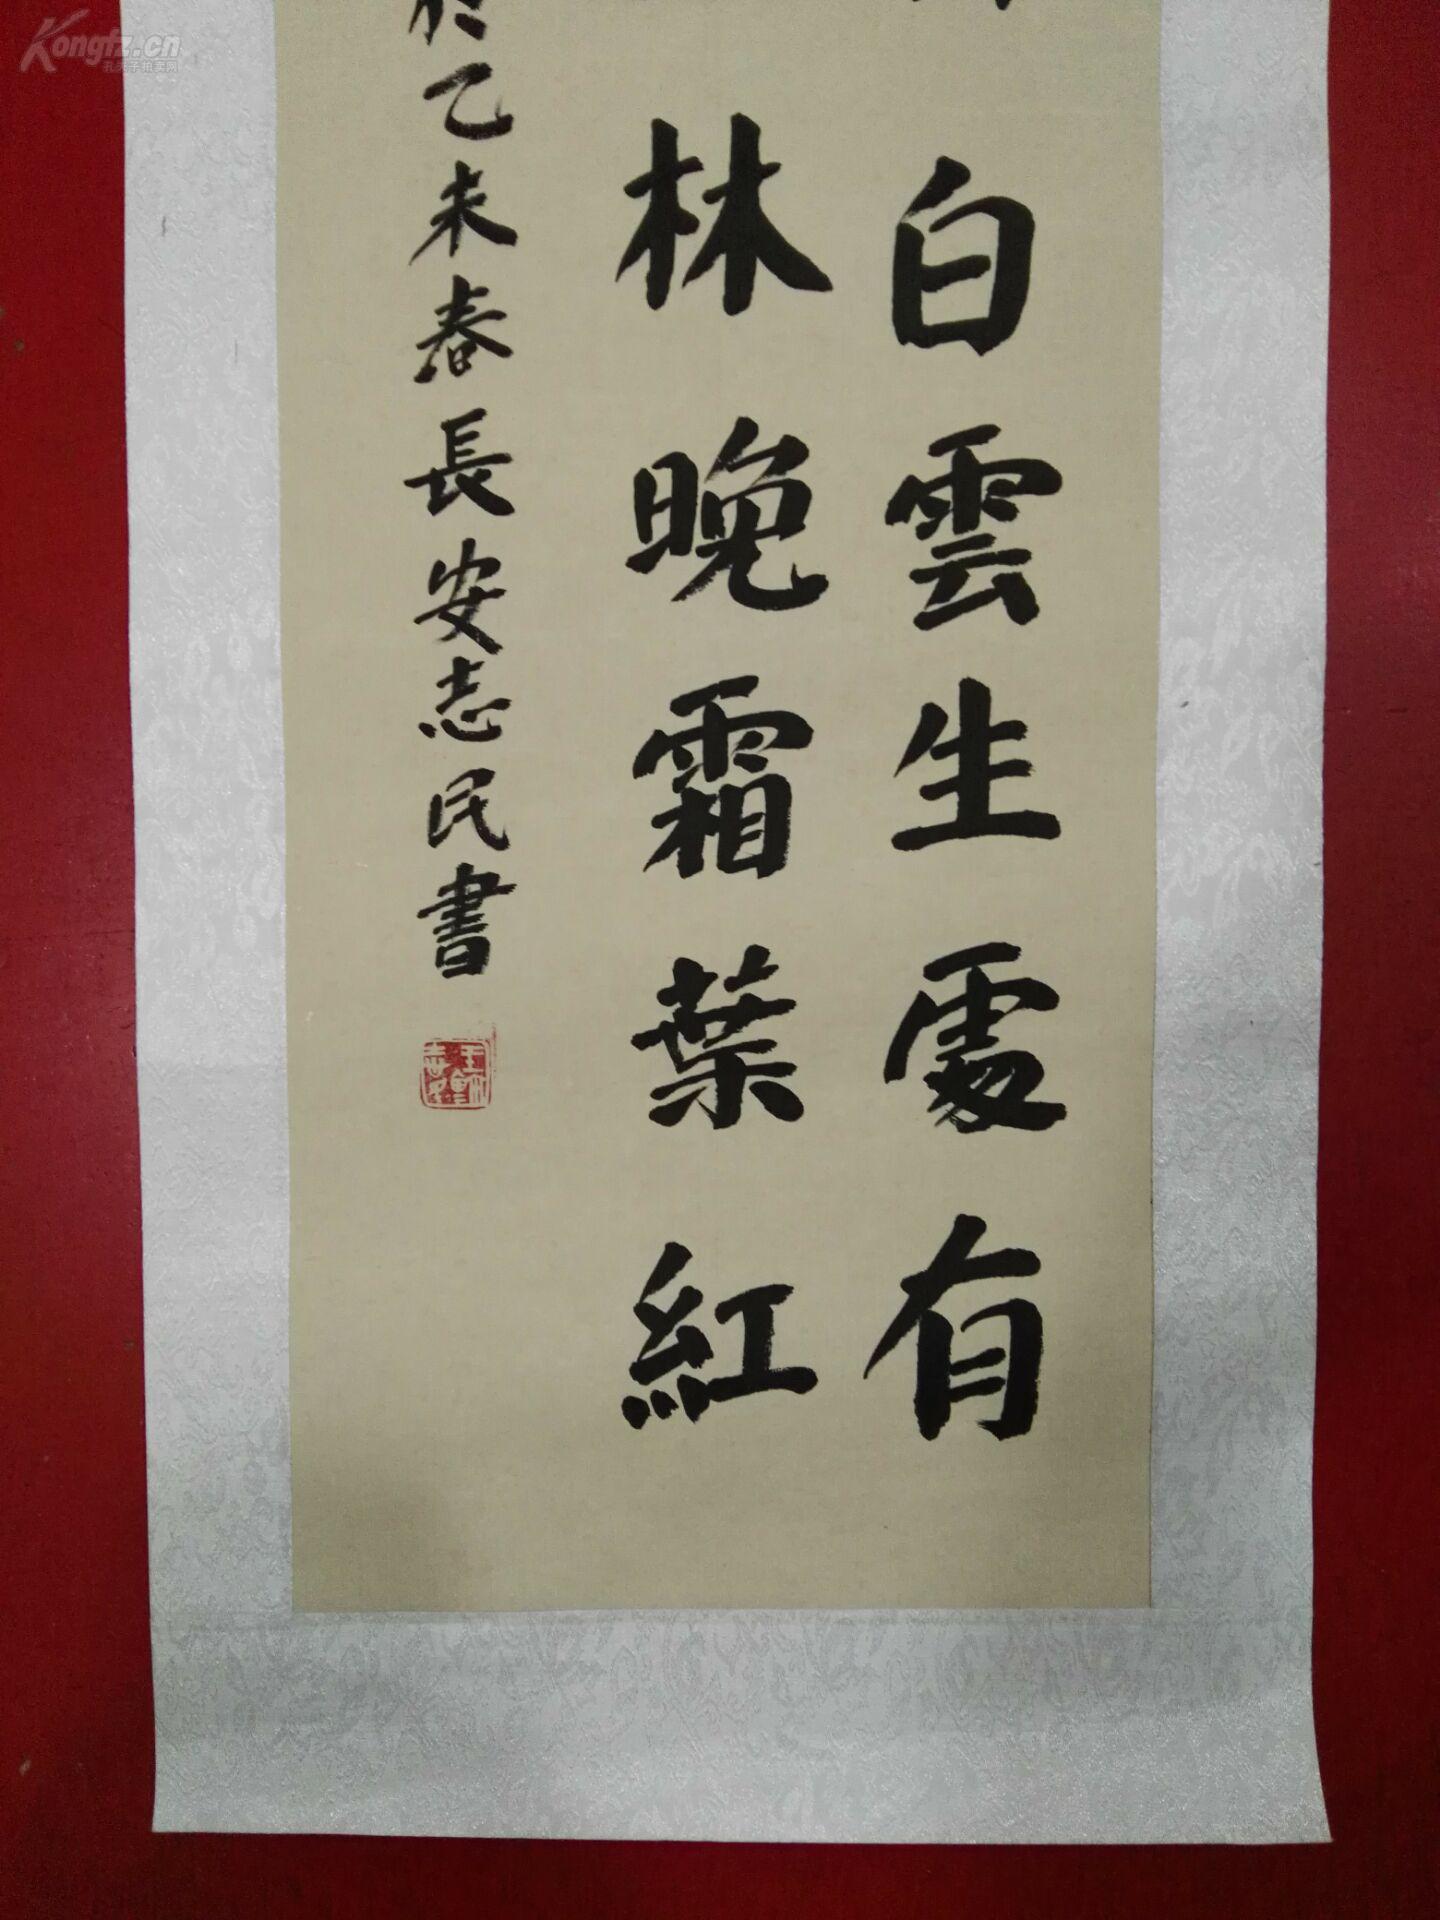 白雲生處有
林晚霜葉紅
於乙未春長安志民書
Kongfz.cn
孔夫子拍卖网